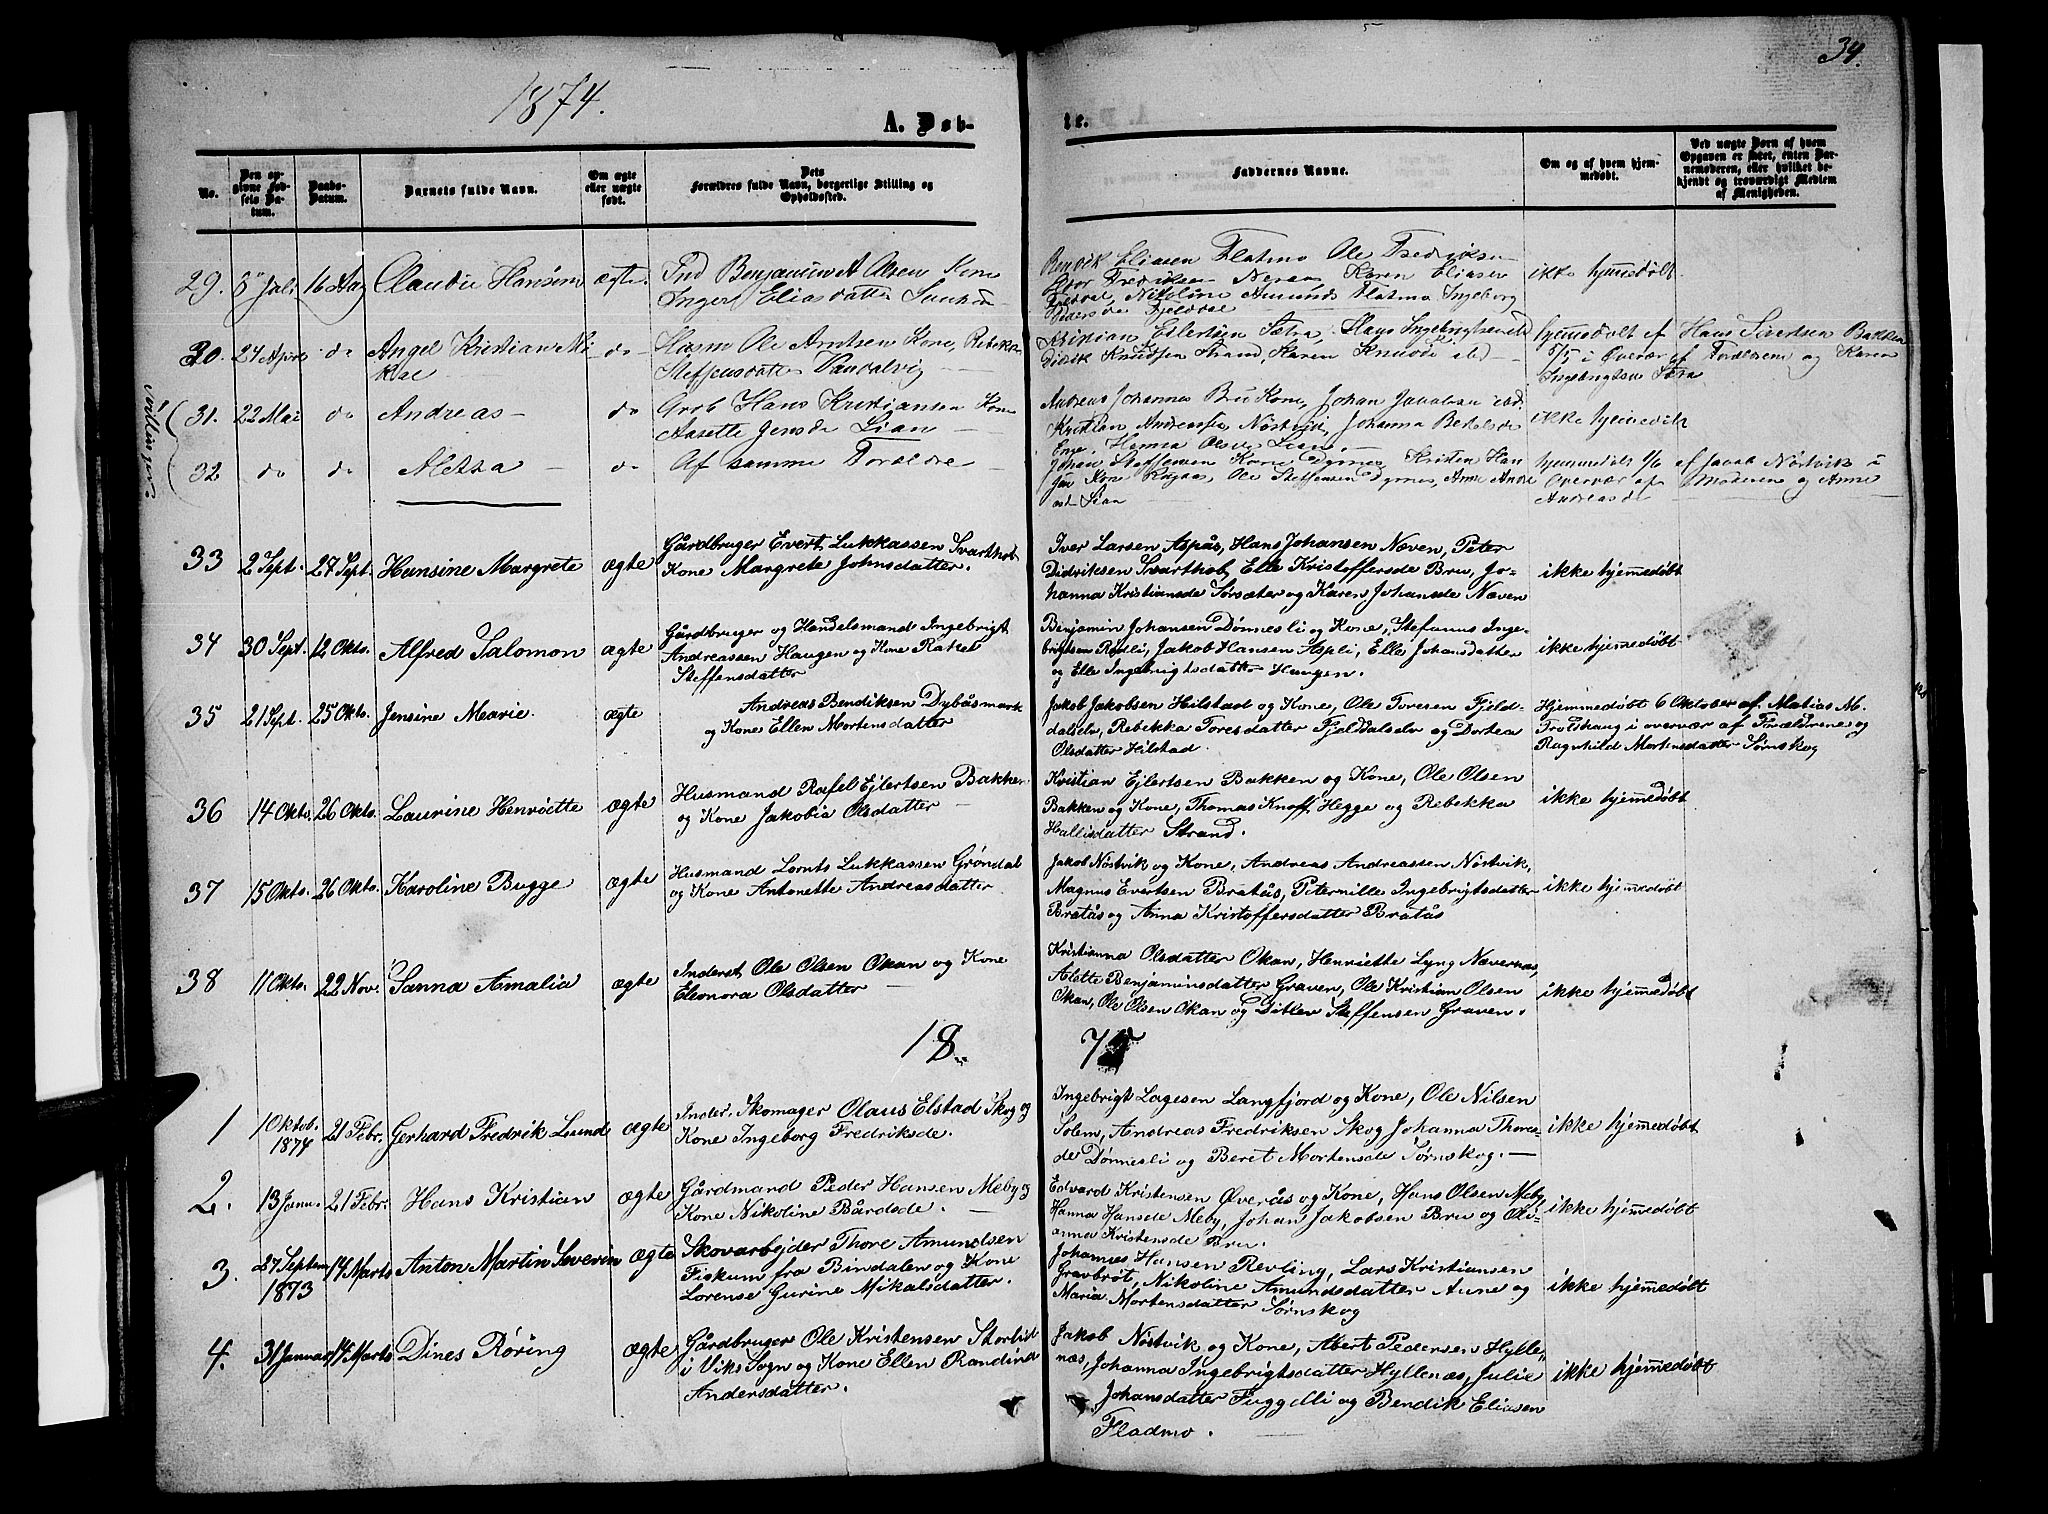 34.
1874.
A. Døb-
te.
No.
Den op-
givne Fød-
sels Da-
tum.
Daabs-
Datum.
Barnets fulde Navn.
Om ægte
eller uægte
født.
Dets
Forældres fulde Navn, borgerlige Stilling og
Opholdssted.
Faddernes Navne.
Om og af hvem hjem-
medøbt.
Ved uægte Børn af hvem
Opgaven er skeet, enten Bar-
nemoderen, eller hvilket be-
kjendt og troværdigt Medlem
af Menigheden.
29. Juli 16 Aug Claudie ægte Ind Benjamin A Olsen Kone
Inger Eliasdatter
Eliasen Flatmo Ole Fredriksen
Fredriksen Karen Eliasen
Nikoline Amunds Flatmo Ingeborg
ikke hjemmedøbt
30. 27 April do Angel Kristian Mi
kal
do Husm Ole Arntsen Kone, Rebekka
Steffensdatter Vandalvig
Kristian Eilertsen Sætra, Hans
Didrik Knudsen Strand, Karen Knudsde ibd
hjemmedøbt af Hans Sivertsen Bakken
5/5 i Overvær af Forældrene og Karen
Ingebrigtsen Sætra
31. 22 Mai do Andreas do Hans Kristiansen Kone
Jensda Lian
Andreas Johannes Bru Kone, Johan Jacobsen ibd.
Kristian Andreassen Nöstvik, Johanna
Hanna Olsen Lian
ikke hjemmedöbt
32 do do do Af samme Forældre
Johan Steffensen Kone Dyrnes, Kristen Han
Kone Ole Steffensen Dyrnes, Anne Andre
Lian
hjemmedöbt af Jacob Nöstvik i
Overvær af Moderen og Anne
Andreasde
33 2 Sept. 27 Sept. Hansine Margrete ægte Gårdbruger Evert Lukkassen Svarthol
Kone Margrete Johnsdatter.
Iver Larsen Aspås, Hans Johansen Næven, Peter
Didriksen Svarthol, Elle Kristoffersde Bru, Jo-
hanna Kristiansde Sørsæter og Karen Johansde Næven
ikke hjemmedøbt
34 30 Sept. 12 Okto. Alfred Salomon ægte Gårdbruger og Handelsmand Ingebrigt
Andreassen Haugen og Kone Rakel
Steffensdatter
Benjamin Johansen Dønnesli og Kone, Stefanus Inge-
brigtsen Rødli, Jakob Hansen Aspli, Elle Johansdatter
og Elle Ingebrigtsdatter Haugen.
ikke hjemmedøbt
35 21 Sept. 25 Okto. Jensine Marie. ægte Andreas Bendiksen Dybåsmark
og Kone Ellen Mortensdatter
Jakob Jakobsen Hilstad og Kone, Ole Toresen Fjeld-
dalselv, Rebekka Toresdatter Fjeldalselv og Dortea
Olsdatter Hilstad.
Hjemmedøbt 6 Oktober af Matias M.
Troldhaug i overvær af Forældrene og
Ragnhild Mortensdatter Sørnskog
36 14 Okto. 26 Okto. Laurine Henriette ægte Husmand Rafel Ejlertsen Bakken
og Kone Jakobia Olsdatter
Kristian Ejlertsen Bakken og Kone, Ole Olsen
Bakken og Kone, Thomas Knoff Hegge og Rebekka
Hallisdatter Strand.
ikke hjemmedøbt
37 15 Okto. 26 Okto. Karoline Bugge ægte Husmand Lornts Lukkassen Grøndal
og Kone Antonette Andreasdatter
Jakob Nöstvik og Kone, Andreas Andreassen Nöstvik,
Magnus Evertsen Bratås, Peternille Ingebrigtsdatter
Bratås og Anna Kristoffersdatter Bratås
ikke hjemmedøbt
38 11 Okto. 22 Nov. Sanna Amalia ægte Inderst Ole Olsen Okan og Kone
Eleonora Olsdatter
Kristianna Olsdatter Okan, Henriette Lyng Nævernes,
Alette Benjaminsdatter Graven, Ole Kristian Olsen
Okan, Ole Olsen Okan og Ditlev Steffensen Graven.
ikke hjemmedøbt
18 75
1 1 Oktob.
1874 21 Febr. Gerhard Fredrik Lound ægte Inder. Skomager Olaus Elstad Skog og
Kone Ingeborg Fredriksde.
Ingebrigt Lagesen Langfjord og Kone, Ole Nilsen
Solem, Andreas Fredriksen Skog Johanna Thores-
de Dønnesli og Beret Mortensde Sørnskog.
ikke hjemmedøbt
2. 13 Janu. 21 Febr. Hans Kristian ægte Gårdmand Peder Hansen Meby og
Kone Nikoline Bårdsde.
Edvard Kristensen Øverås og Kone, Hans Olsen Meby
Hanna Hansde Meby, Johan Jakobsen Bru og Oli-
anna Kristensde Bru.
ikke hjemmedøbt
3. 27 Septem
1873 14 Marts Anton Martin Severin ægte Skovarbejder Thore Amundsen
Fiskum fra Bindalen og Kone
Lorense Gurine Mikalsdatter.
Johannes Hansen Revling, Lars Kristiansen
Gravbröt, Nikoline Amundsdatter Aune og
Maria Mortensdatter Sørnskog
ikke hjemmedøbt
4. 31 Januar 14 Marts Dines Røring ægte Gårdbruger Ole Kristensen Storlid
i Viks Sogn og Kone Ellen Randine
Andersdatter.
Jakob Nöstvik og Kone, Abert Pedersen Hylle-
næs, Johanna Ingebrigtsdatter Hyllenæs, Julie
Johansdatter Fuggelli og Bendik Eliasen
Fladmo.
ikke hjemmedøbt